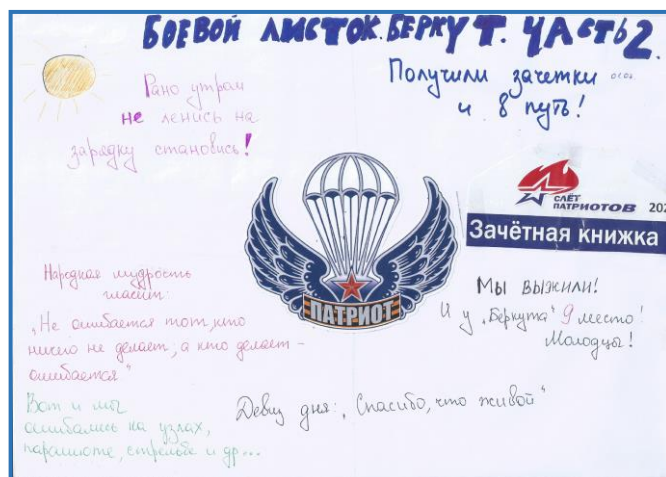 БОЕВОЙ ЛИСТОК. БЕРКУТ. ЧАСТЬ 2.
Рано утром
не ленись на
зарядку становись!
Получили зачетки
и в путь!
СЛЁТ
ПАТРИОТОВ 202
Зачётная книжка
ПАТРИОТ
Народная мудрость
гласит:
„Не ошибается тот, кто
ничего не делает, а кто делает -
ошибается"
Вот и мы
ошибались на узлах,
парашюте, стрельбе и др...
Мы выжили!
И у „Беркута" 9 место!
Молодцы!
Девиз дня: „Спасибо, что живой"